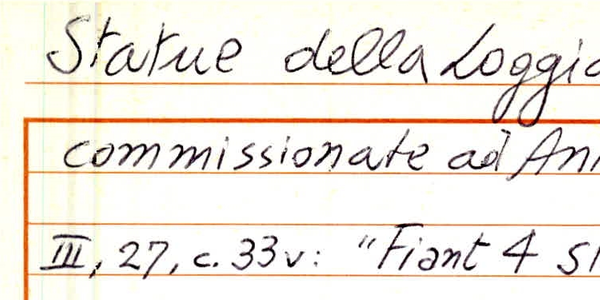 Statue della Loggia
commissionate ad Ann
III, 27, c. 33v: "Fiant 4 st